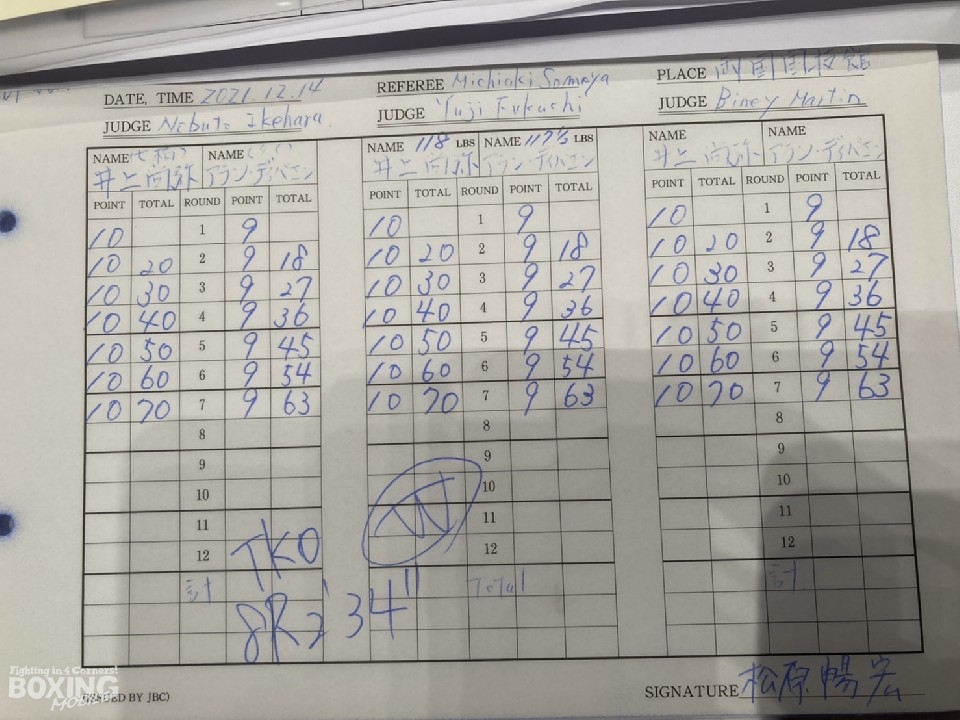 DATE, TIME 2021.12.14 REFEREE Michiaki Someya PLACE 両国国技館
JUDGE Nobuto Ikehara JUDGE Yuji Fukuchi JUDGE Biney Martin
NAME NAME NAME 118 LBS NAME 117¾ LBS NAME NAME
井上尚弥 アラン・ディパエン 井上尚弥 アラン・ディパエン 井上尚弥 アラン・ディパエン
POINT TOTAL ROUND POINT TOTAL POINT TOTAL ROUND POINT TOTAL POINT TOTAL ROUND POINT TOTAL
10 1 9 10 1 9 10 1 9
10 20 2 9 18 10 20 2 9 18 10 20 2 9 18
10 30 3 9 27 10 30 3 9 27 10 30 3 9 27
10 40 4 9 36 10 40 4 9 36 10 40 4 9 36
10 50 5 9 45 10 50 5 9 45 10 50 5 9 45
10 60 6 9 54 10 60 6 9 54 10 60 6 9 54
10 70 7 9 63 10 70 7 9 63 10 70 7 9 63
8 8 8
9 9 9
10 10 10
11 11 11
12 12 12
TKO W
計 Total 計
8R2'34"
Fighting in 4 Corners!
BOXING
MOBILE
BY JBC)
SIGNATURE 松原暢宏